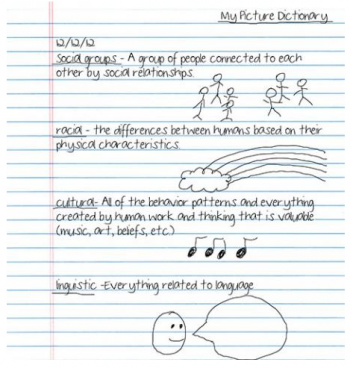 My Picture Dictionary
12/12/12
Social groups - A group of people connected to each
other by social relationships.
racial - the differences between humans based on their
physical characteristics.
cultural - All of the behavior patterns and everything
created by human work and thinking that is valuable
(music, art, beliefs, etc.)
linguistic - Everything related to language